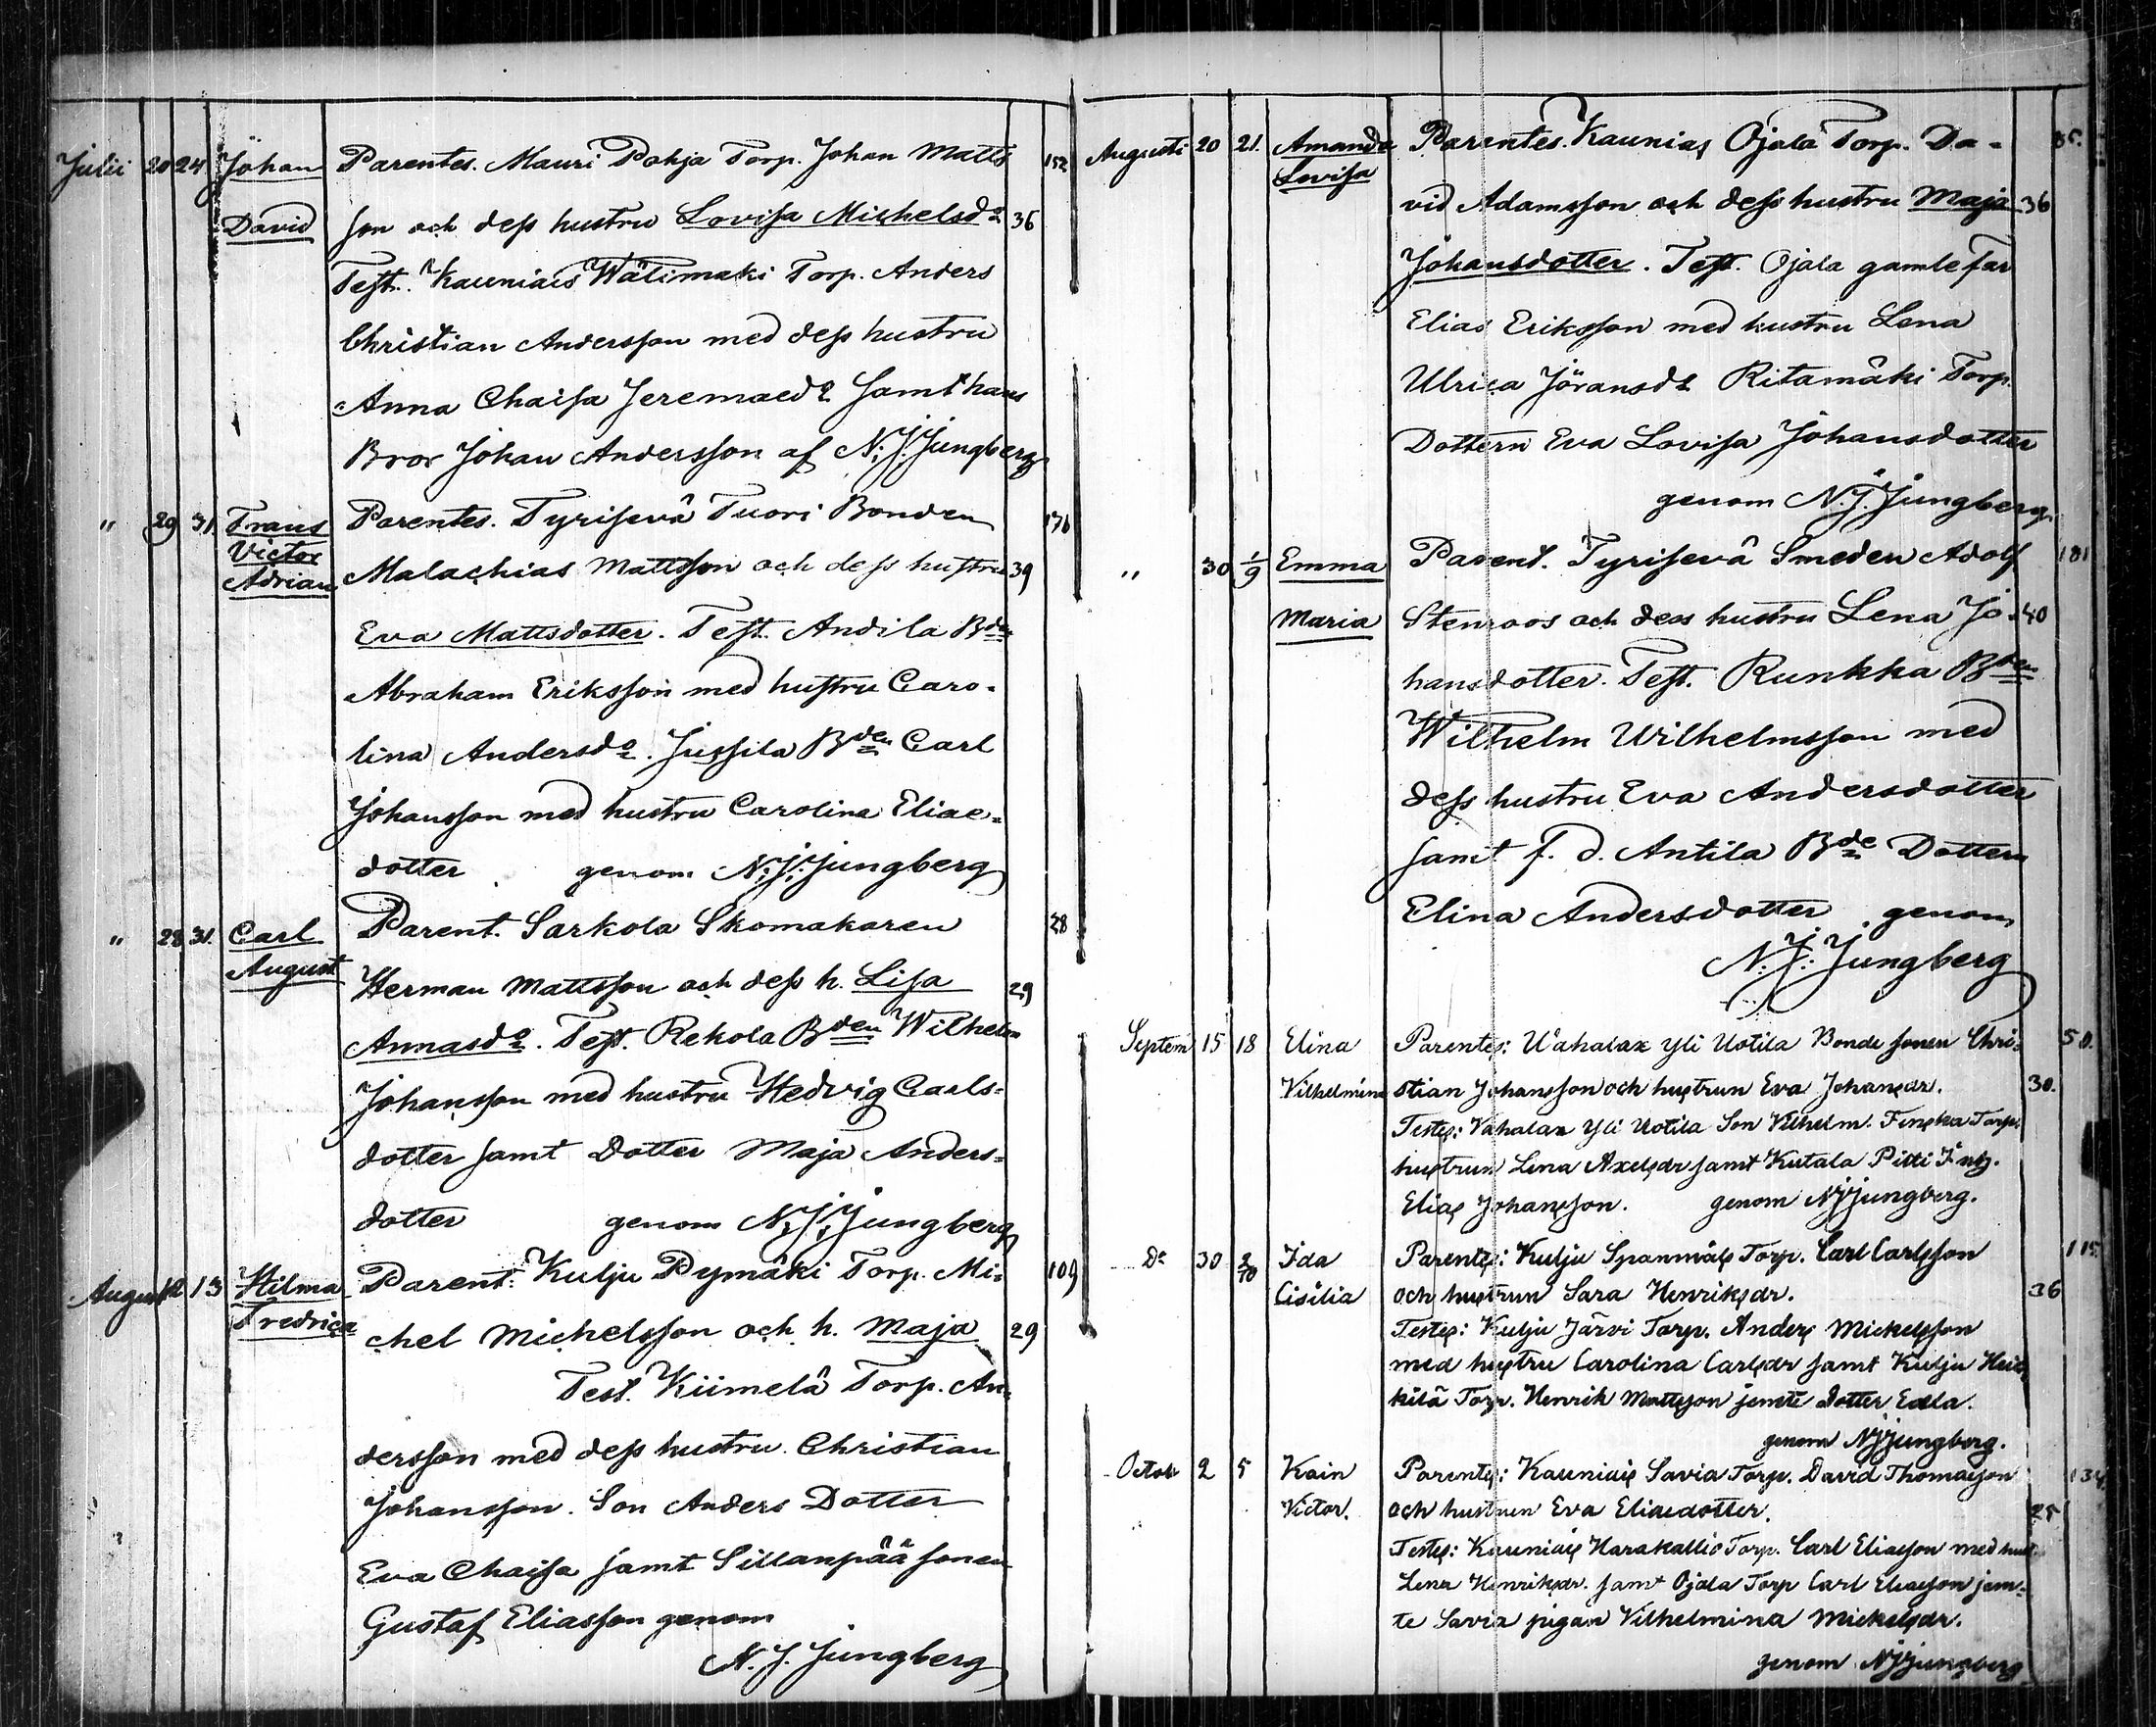 Julii 20 24 Johan Parentes. Mauri Pohja Torp. Johan Matts 152
David son och dess hustru Lovisa Michelsdr 36
Test. Kauniais Wälimaki Torp. Anders
Christian Andersson med dess hustru
Anna Chaisa Jeremaedr samt hans
Bror Johan Andersson af N. J. Jungberg
" 29 31. Frans Parentes. Tyrisevä Tuori Bonden 176
Victor
Adrian Malachias Mattsson och dess hustru 39
Eva Mattsdotter. Test. Andila Bden
Abraham Eriksson med hustru Caro-
lina Andersdr. Jussila Bden Carl
Johansson med hustru Carolina Eliae-
dotter genom N. J. Jungberg
" 28 31. Carl Parent. Sarkola Skomakaren 28
August
Herman Mattsson och dess h. Lisa 29
Annasdr. Test. Rekola Bden Wilhelm
Johansson med hustru Hedvig Carls-
dotter samt Dotter Maja Anders-
dotter genom N. J. Jungberg
August 12 13 Hilma Parent: Kulju Pymäki Torp. Mi- 109
Fredrica chel Michelsson och h. Maja 29
Test. Kiimelä Torp. An-
dersson med dess hustru. Christian
Johansson. Son Anders Dotter
Eva Chaisa samt Sillanpää sonen
Gustaf Eliasson genom
N. J. Jungberg
Augusti 20 21. Amanda Parentes. Kaunias Ojala Torp. Da- 85.
Lovisa
vid Adamsson och dess hustru Maja 36
Johansdotter. Test. Ojala gamle far
Elias Eriksson med hustru Lena
Ulrica Jöransdr Ritamäki Torp.
Dottern Eva Lovisa Johansdotter
genom N. J. Jungberg.
" 30 1/9 Emma Parent. Tyrisevä Smeden Adolf 181
Maria Stenroos och dess hustru Lena Jo- 40
hansdotter. Test. Runkka Bden
Wilhelm Wilhelmsson med
dess hustru Eva Andersdotter
samt f. d. Antila Bde Dottern
Elina Andersdotter genom
N. J. Jungberg
Septem 15 18 Elina Parentes: Wahalax Yli Uotila Bonde sonen Chri- 50.
Vilhelmina stian Johansson och hustrun Eva Johansdr. 30.
Testes: Vahalax Yli Uotila Son Vilhelm. Finska Torp.
hustrun Lena Axelsdr samt Kutala Pitti Inh.
Elias Johansson. genom NJJungberg.
Do 30 2/10 Ida Parentes: Kulju Spanmäs Torp. Carl Carlsson 115.
Cisilia och hustrun Sara Henriksdr. 36
Testes: Kulju Järvi Torp. Anders Mickelsson
med hustru Carolina Carlsdr samt Kulju Heik
kilä Torp. Henrik Mattsson jemte dotter Edla.
genom NJJungberg.
Octob 2 5 Kain Parentes: Kauniais Savia Torp. David Thomasson 134.
Victor. och hustrun Eva Eliaedotter. 25
Testes: Kauniais Harakallio Torp. Carl Eliasson med hust.
Lena Henriksdr. samt Ojala Torp Carl Eliasson jem-
te Savia pigan Vilhelmina Mickelsdr.
genom NJJungberg